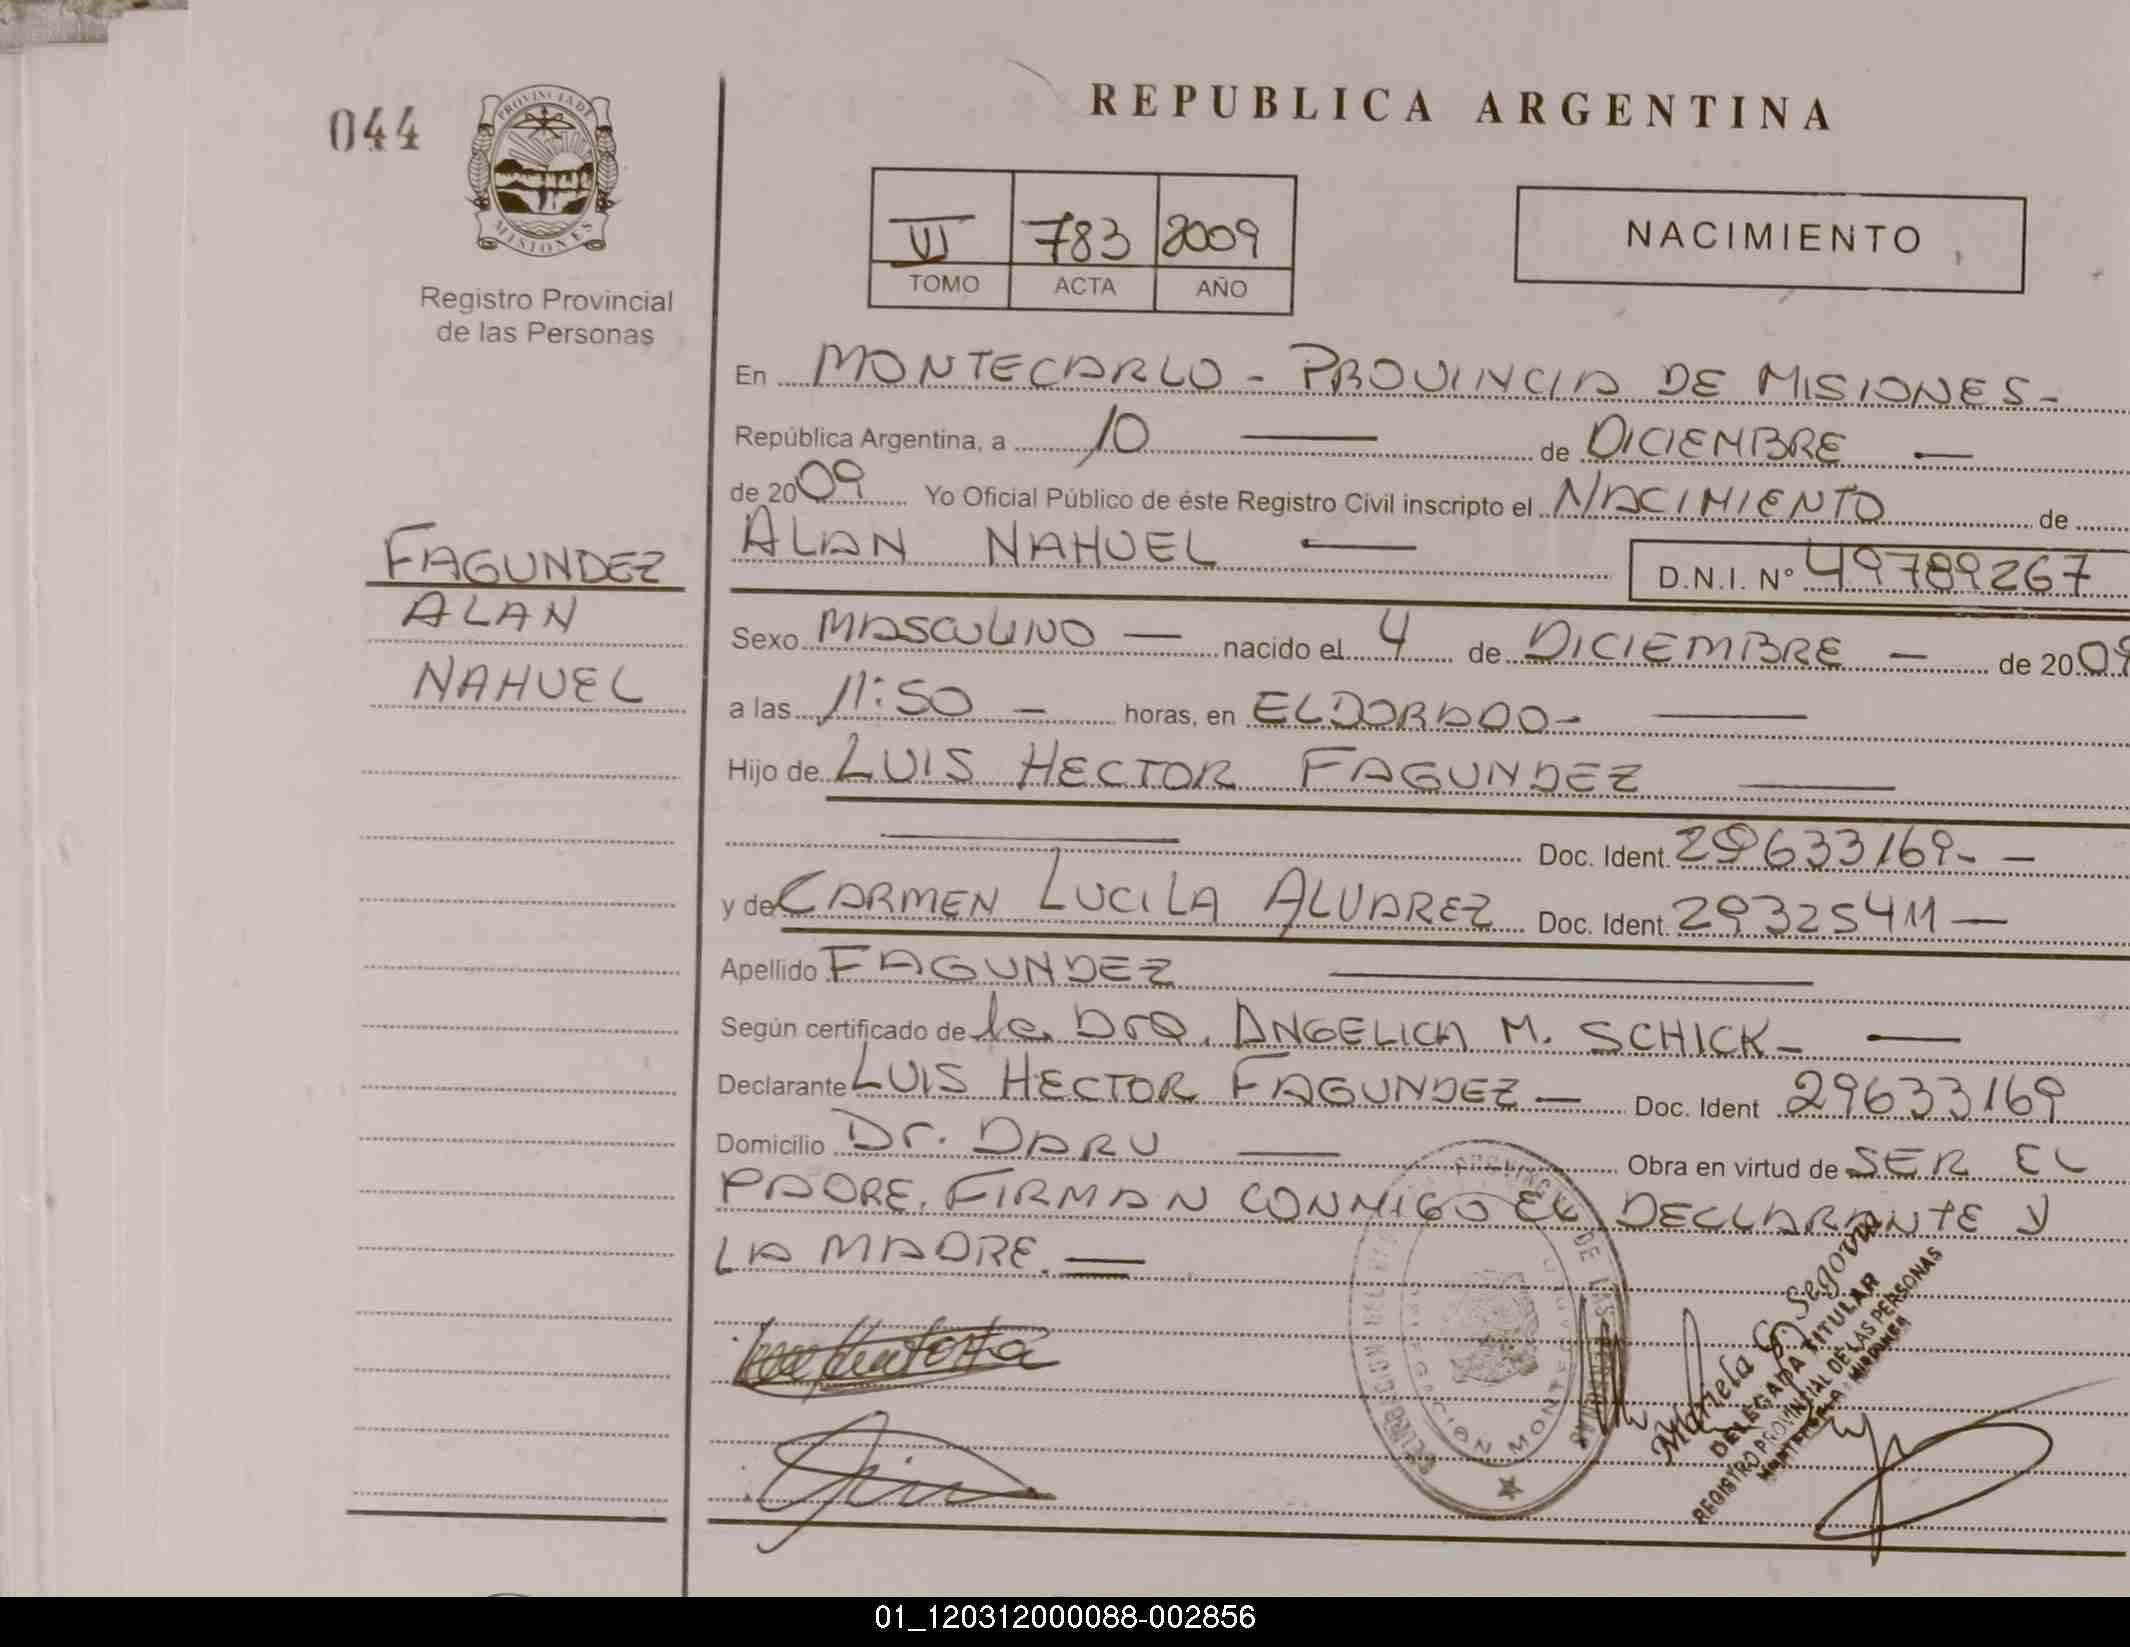 044
PROVINCIA DE
MISIONES
Registro Provincial
de las Personas
REPUBLICA ARGENTINA
VI 783 2009
TOMO ACTA AÑO
NACIMIENTO
En MONTECARLO - PROVINCIA DE MISIONES-
República Argentina, a 10 — de DICIEMBRE —
de 2009 Yo Oficial Público de éste Registro Civil inscripto el NACIMIENTO de
ALAN NAHUEL — D.N.I. Nº 49789267
FAGUNDEZ
ALAN
NAHUEL
Sexo MASCULINO — nacido el 4 de DICIEMBRE — de 2009
a las 11:50 — horas, en ELDORADO- —
Hijo de LUIS HECTOR FAGUNDEZ —
— Doc. Ident. 29633169- —
y de CARMEN LUCILA ALVAREZ Doc. Ident. 29325411 —
Apellido FAGUNDEZ —
Según certificado de la Dra. ANGELICA M. SCHICK- —
Declarante LUIS HECTOR FAGUNDEZ — Doc. Ident 29633169
Domicilio Dr. DARU — Obra en virtud de SER EL
PADRE. FIRMAN CONMIGO EL DECLARANTE Y
LA MADRE. —
PROVINCIAL DE LAS PERSONAS
DELEGACION MONTE
Mariela G. Segovia
DELEGADA TITULAR
REGISTRO PROVINCIAL DE LAS PERSONAS
MONTECARLO - MISIONES
01_120312000088-002856